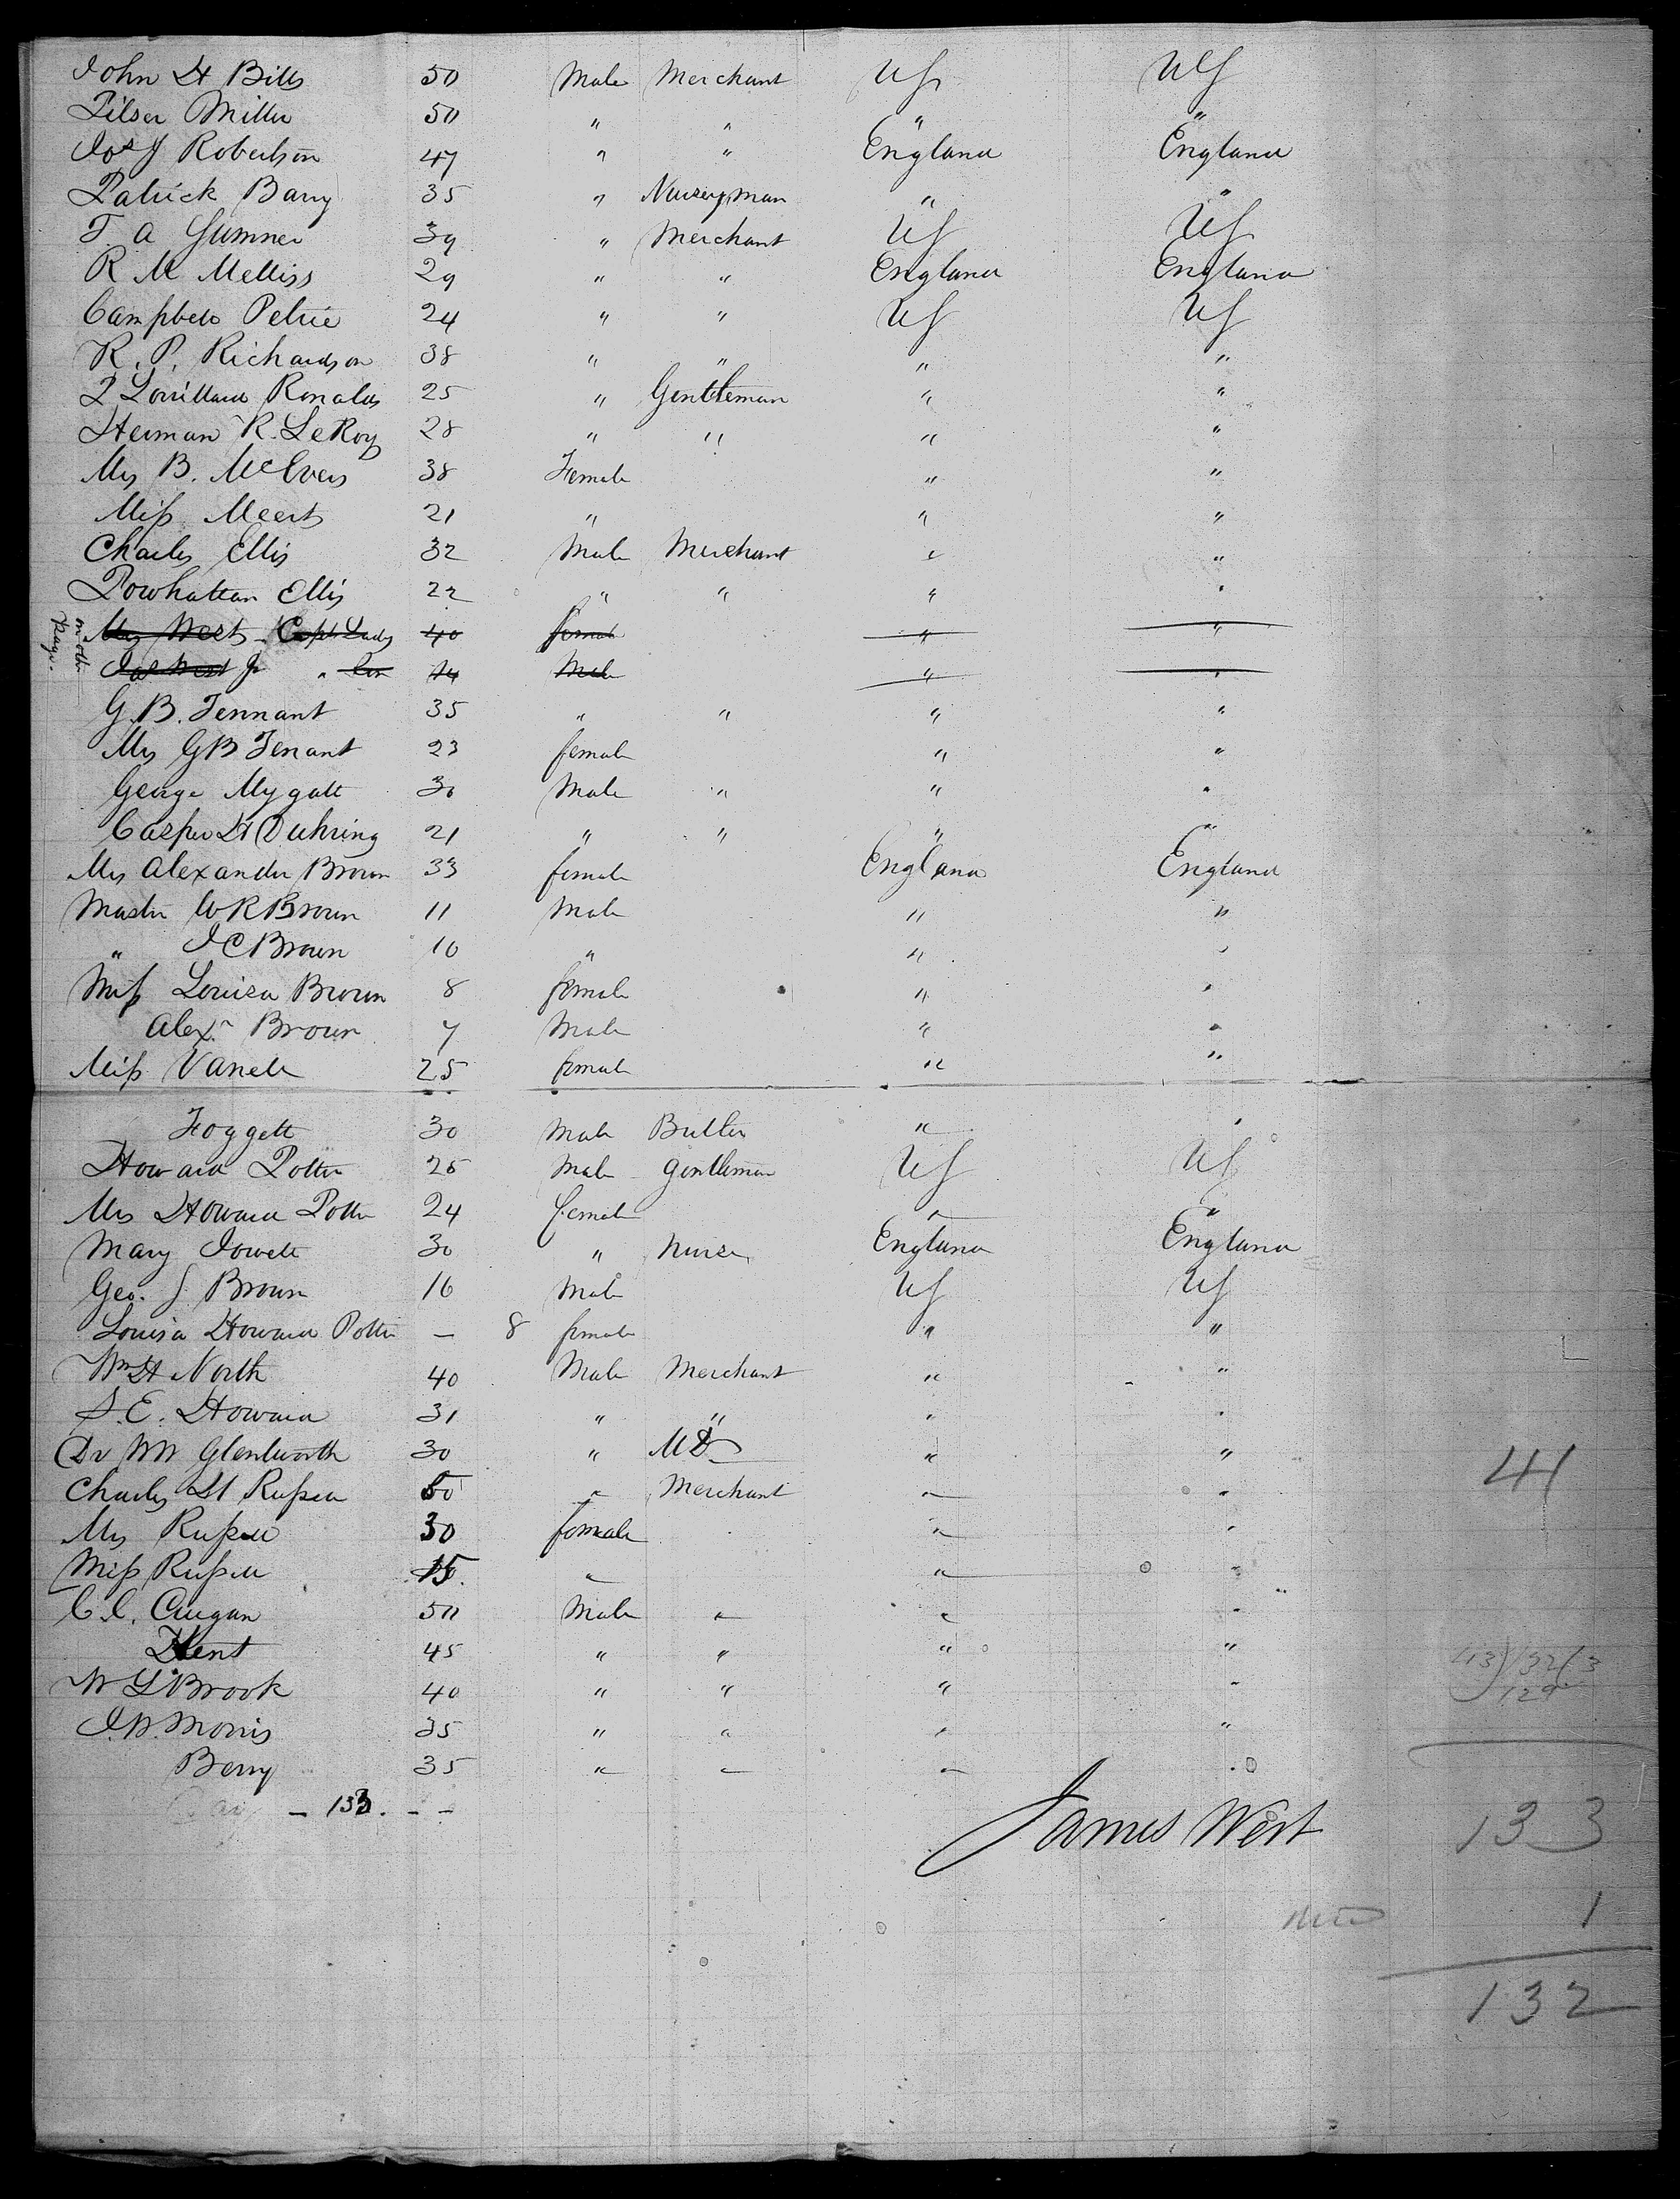 John H Bills 50 Male Merchant US US
Pilser Miller 50 " " " "
Jos J Robertson 47 " " England England
Patrick Barry 35 " Nurseryman " "
T. A Sumner 39 " Merchant US US
R M Melliss 29 " " England England
Campbell Petrie 24 " " US US
R. P. Richardson 38 " " " "
P Lorrillard Ronalds 25 " Gentleman " "
Herman R. LeRoy 28 " " " "
Mrs B. McEvers 38 Female " "
Miss Meert 21 " " "
Charles Ellis 32 Male Merchant " "
Powhattan Ellis 22 " " " "
Mrs West - Capts Lady 40 female " "
Jas West Jr " Son 14 Male " "
on other page.
G. B. Tennant 35 " " " "
Mrs GB Tenant 23 female " "
George Mygatt 30 Male " " "
Casper H Duhring 21 " " " "
Mrs Alexander Brown 33 female England England
Master W R Brown 11 Male " "
" J C Brown 10 " " "
Miss Louisa Brown 8 female " "
Alexr Brown 7 Male " "
Miss 25 female " "
Foggett 30 Male Butler " "
Howard Potter 26 Male Gentleman US US
Mrs Howard Potter 24 female " "
Mary Jowett 30 " Nurse England England
Geo. S. Brown 16 Male US US
Louisa Howard Potter — 8 female " "
Wm H North 40 Male Merchant " "
S. E. Howard 31 " " " "
Dr WW Glentworth 30 " MD " "
Charles H Russell 50 " Merchant " "
Mrs Russell 30 female " "
Miss Russell 15. " " "
C. C. 50 Male " " "
Kent 45 " " " "
W L Brook 40 " " " "
J. W. Morris 35 " " " "
Berry 35 " " " "
— 133. - -
James West
41
43)132(3
129
133
1
132